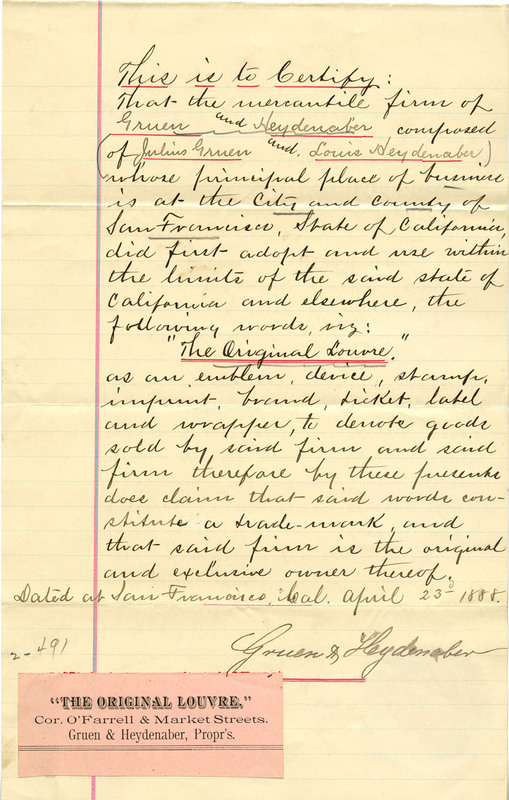 This is to Certify:
That the mercantile firm of
Gruen and Heydenaber composed
(of Julius Gruen and Louis Heydenaber)
whose principal place of business
is at the City and County of
San Francisco, State of California,
did first adopt and use within
the limits of the said state of
California and elsewhere, the
following words, viz:
"The Original Louvre."
as an emblem, device, stamp,
imprint, brand, ticket, label
and wrapper, to denote goods
sold by said firm and said
firm therefore by these presents
does claim that said words con-
stitute a trade-mark, and
that said firm is the original
and exclusive owner thereof.
Dated at San Francisco, Cal. April 23d 1888.
Gruen & Heydenaber
2-491
"THE ORIGINAL LOUVRE."
Cor. O'Farrell & Market Streets.
Gruen & Heydenaber, Propr's.